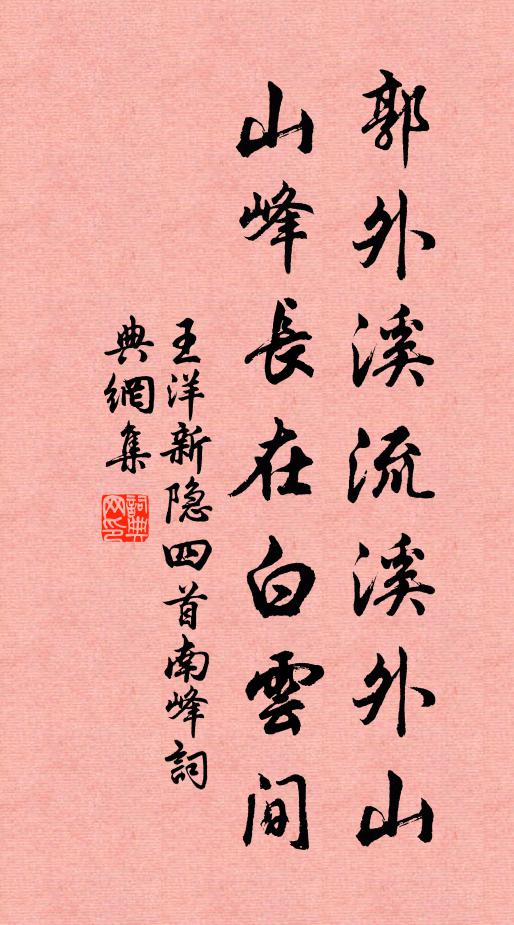 郭外溪流溪外山
山峰長在白雲间
王洋新隐四首南峰詞
典網集
詞典网印